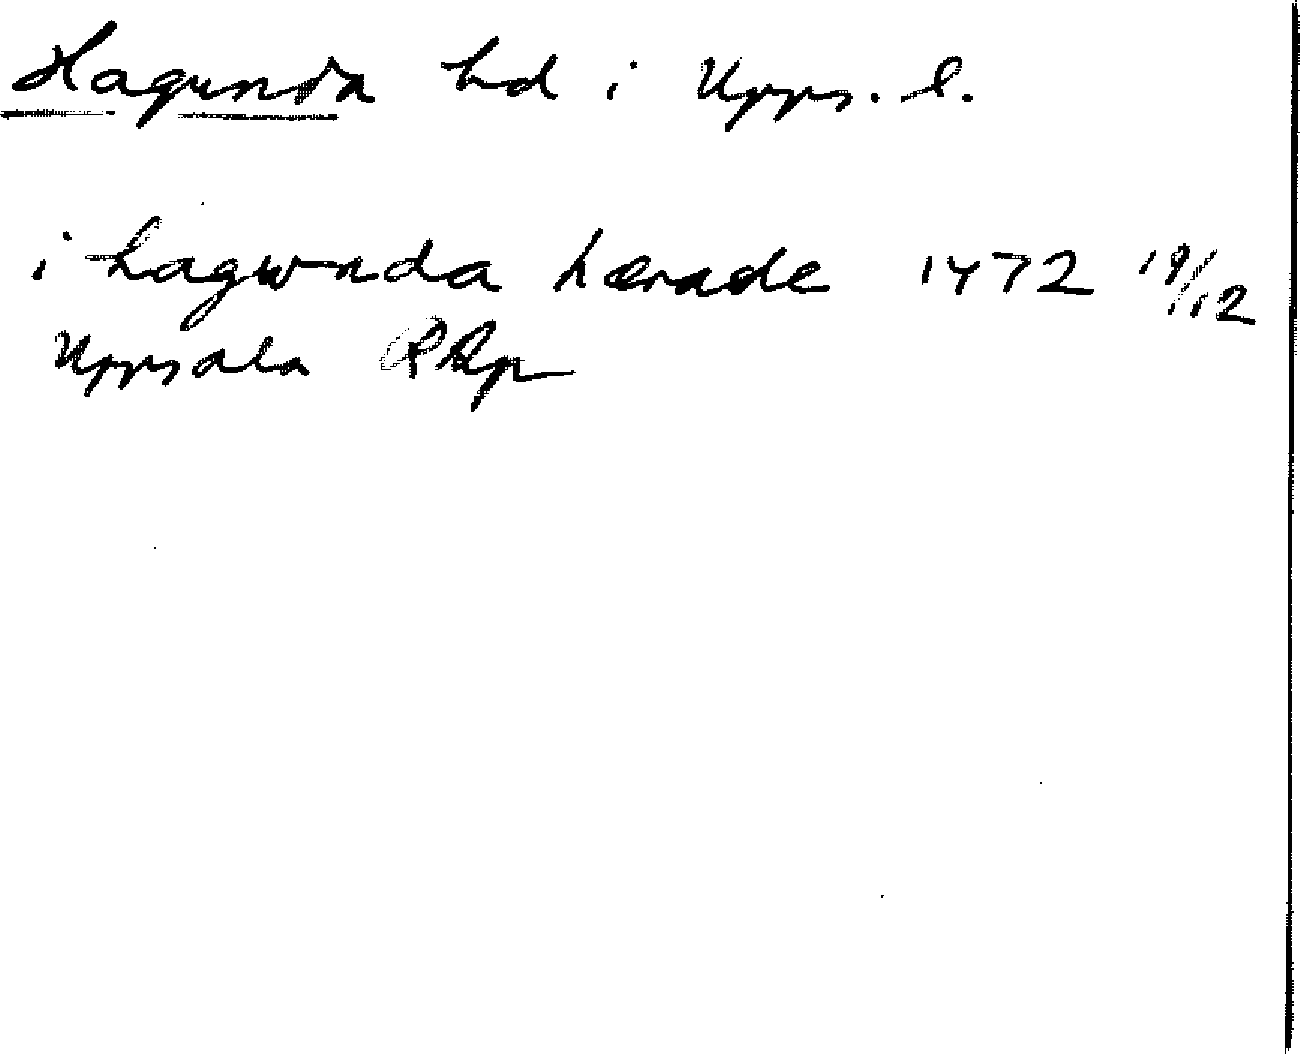 Hagunda hd i Upps. l.
i hagwnda hærade 1472 19/12
Uppsala RAp